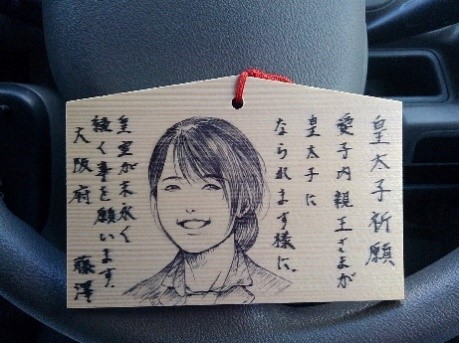 皇太子祈願
愛子内親王さまが
皇太子に
なられます様に。
皇室が末永く
続く事を願います。
大阪府 藤澤